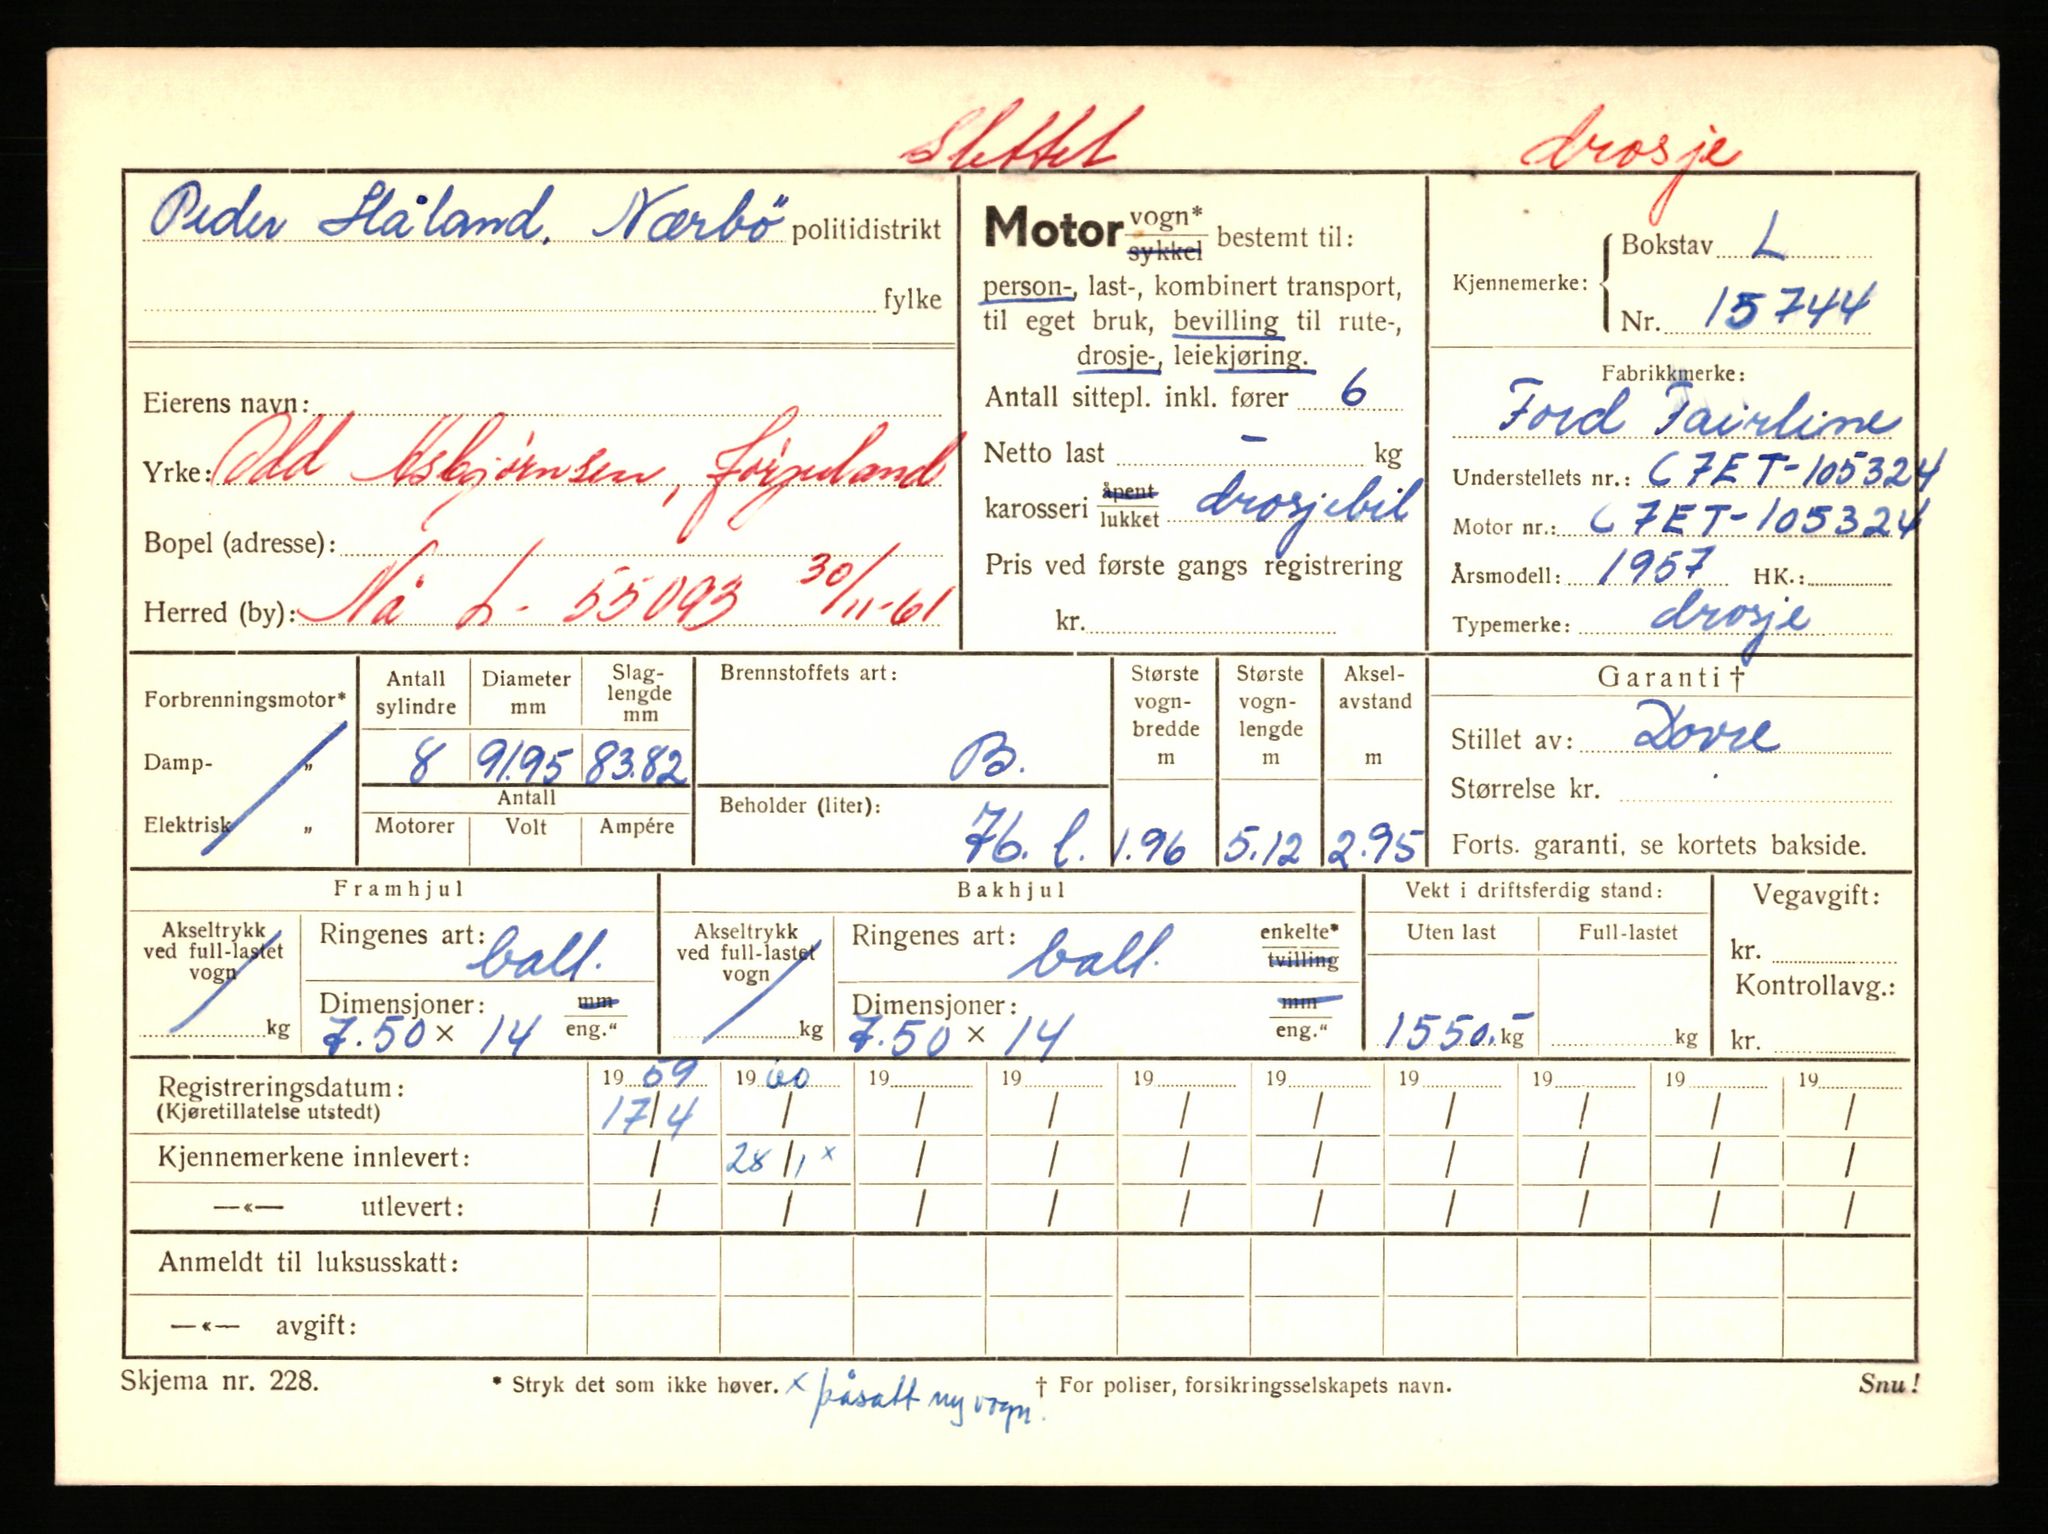 Slettet drosje
Peder Håland, Nærbö politidistrikt
fylke
Eierens navn:
Yrke: Odd Asbjørnsen, Jørpeland
Bopel (adresse):
Herred (by): Nå L- 55093 30/11-61
Motor vogn* sykkel bestemt til:
person-, last-, kombinert transport,
til eget bruk, bevilling til rute-,
drosje-, leiekjøring.
Antall sittepl. inkl. fører 6
Netto last – kg
karosseri åpent lukket drosjebil
Pris ved første gangs registrering
kr.
Kjennemerke: Bokstav L
Nr. 15744
Fabrikkmerke:
Ford Fairline
Understellets nr.: C7ET-105324
Motor nr.: C7ET-105324
Årsmodell: 1957 HK.:
Typemerke: drosje
Forbrenningsmotor*
Damp- „
Elektrisk „
Antall sylindre 8
Diameter mm 91.95
Slaglengde mm 83.82
Antall
Motorer Volt Ampére
Brennstoffets art: B.
Beholder (liter): 76. l.
Største vognbredde m 1.96
Største vognlengde m 5.12
Akselavstand m 2.95
Garanti †
Stillet av: Dovre
Størrelse kr.
Forts. garanti, se kortets bakside.
Framhjul
Akseltrykk ved full-lastet vogn kg
Ringenes art: ball.
Dimensjoner: mm eng."
7.50 × 14
Bakhjul
Akseltrykk ved full-lastet vogn kg
Ringenes art: ball. enkelte* tvilling
Dimensjoner: mm eng."
7.50 × 14
Vekt i driftsferdig stand:
Uten last Full-lastet
1550.- kg kg
Vegavgift:
kr.
Kontrollavg.:
kr.
Registreringsdatum: 1959 1960 19 19 19 19 19 19 19 19
(Kjøretillatelse utstedt) 17/4 / / / / / / / / /
Kjennemerkene innlevert: / 28/1 x / / / / / / / /
—«— utlevert: / / / / / / / / / /
Anmeldt til luksusskatt:
—«— avgift:
Skjema nr. 228. * Stryk det som ikke høver. x påsatt ny vogn. † For poliser, forsikringsselskapets navn. Snu!